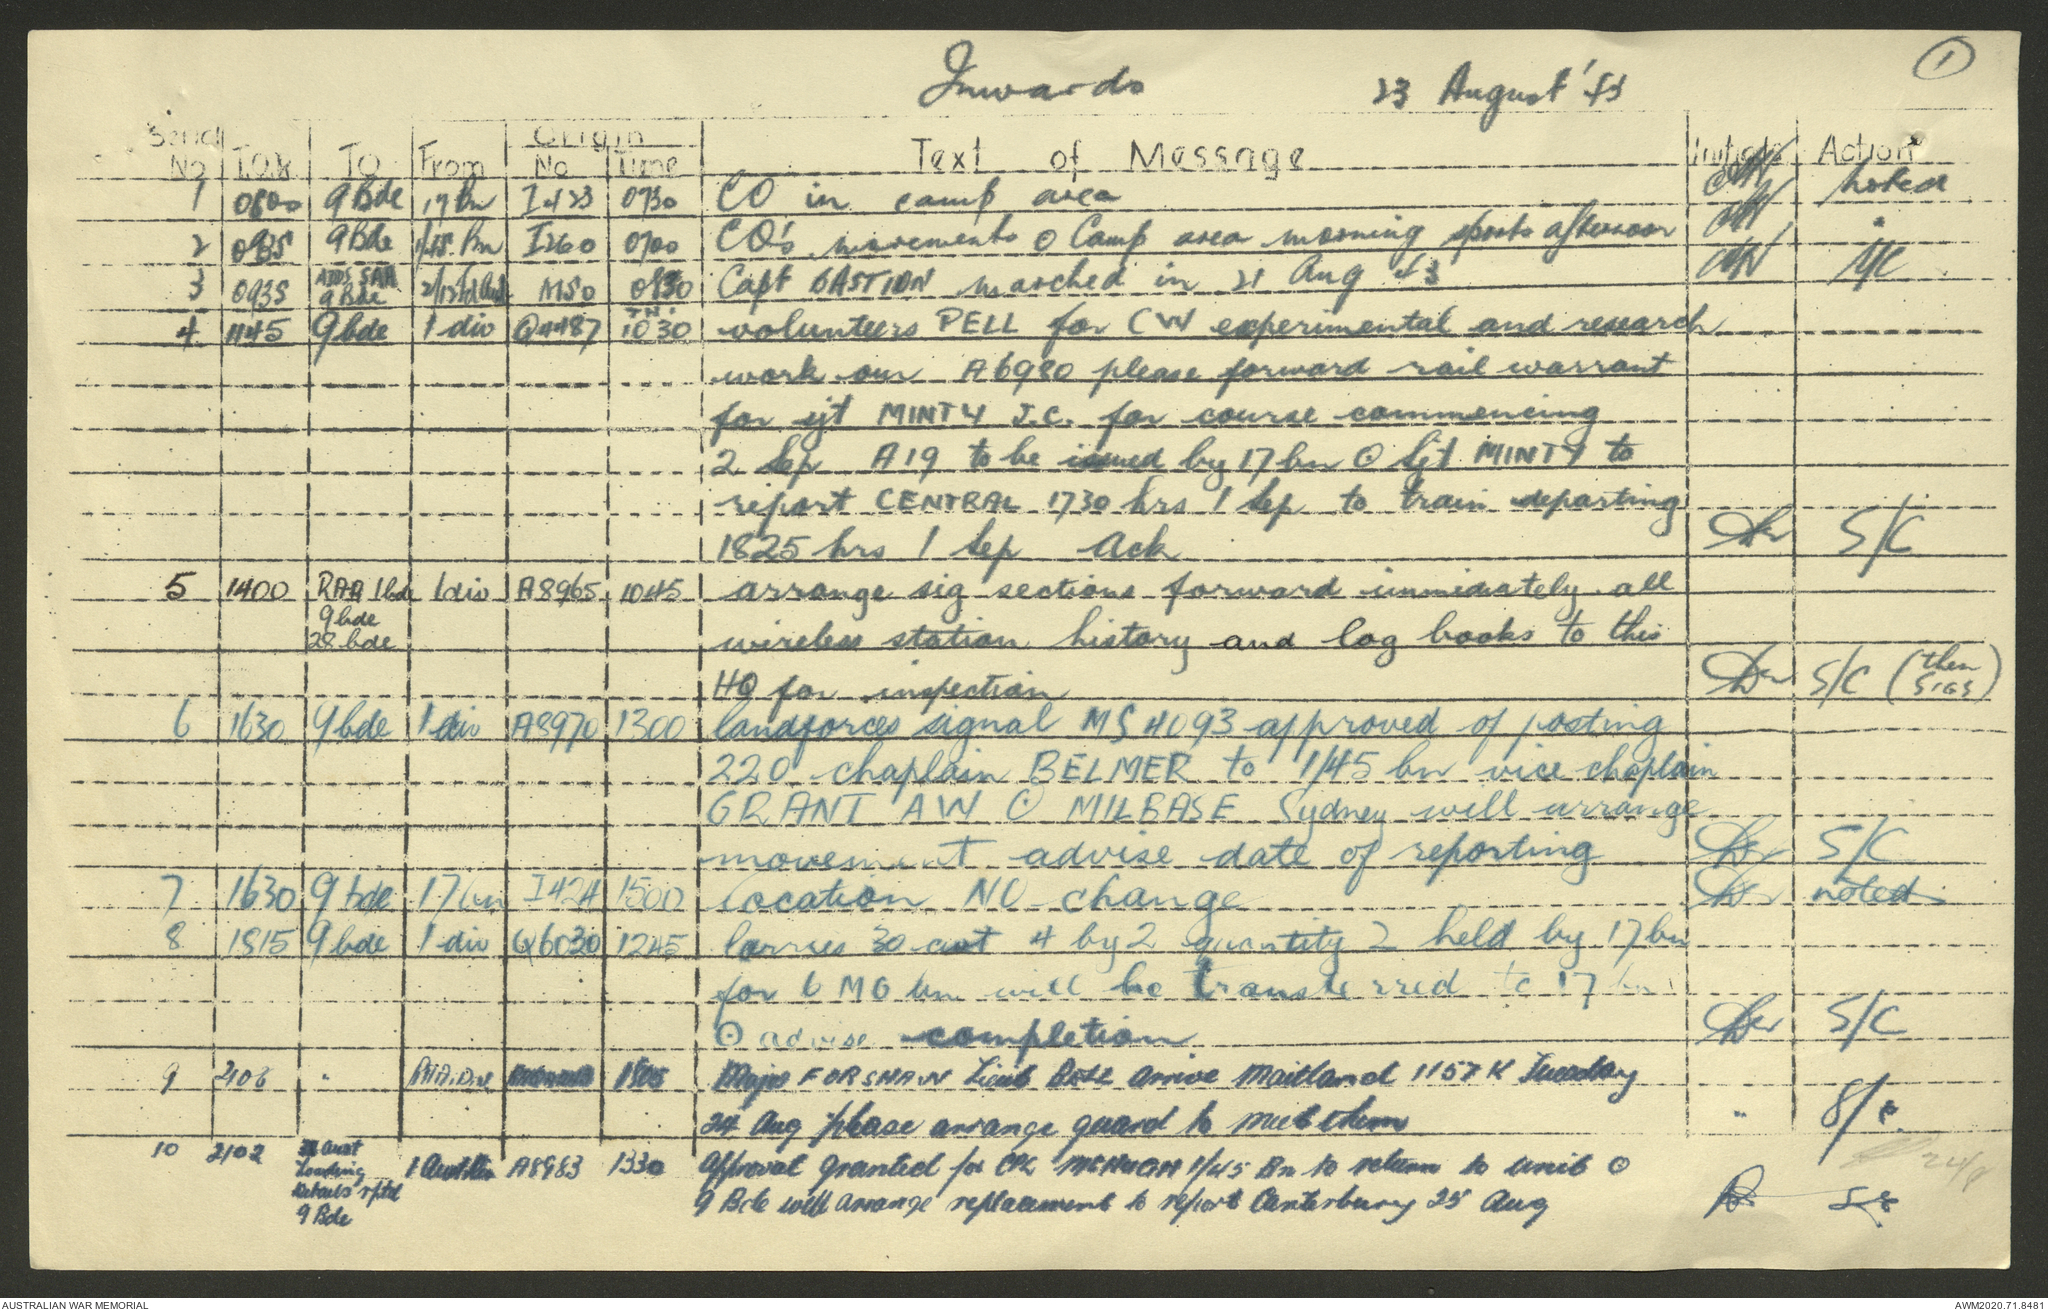 Inwards 23 August '43 1
Serial No To To From Origin No Time Text of Message Initials Action
1 0800 9 Bde 17 Bn I423 0730 CO in camp area noted
2 0935 9 Bde 1/45 Bn I260 0700 CO's movements ⊙ Camp area morning sports afternoon "
3 0935 ADDS SAA 9 Bde M50 0830 Capt BASTION marched in 21 Aug 43
4 1145 9 bde 1 div Q4487 1030 volunteers PELL for CW experimental and research
work our A6980 please forward rail warrant
for sjt MINTY J.C. for course commencing
2 Sep A19 to be issued by 17 bn ⊙ Sjt MINTY to
report CENTRAL 1730 hrs 1 Sep to train departing
1825 hrs 1 Sep Ack S/C
5 1400 RAA 1 bde 1 div A8965 1045 arrange sig sections forward immediately all
9 bde wireless station history and log books to this
28 bde
HQ for inspection S/C (then SIGS)
6 1630 9 bde 1 div A8970 1300 landforces signal MS 4093 approved of posting
220 chaplain BELMER to 1/45 bn vice chaplain
GRANT AW ⊙ MILBASE Sydney will arrange
movement advise date of reporting S/C
7 1630 9 bde 17 bn I424 1500 location NO change noted
8 1815 9 bde 1 div Q6030 1245 lorries 30 cwt 4 by 2 quantity 2 held by 17 bn
for 6 MG bn will be transferred to 17 bn
⊙ advise completion S/C
9 " 1805 Major FORSHAW Lieut BELL arrive Maitland 1157 K Tuesday
24 Aug please arrange guard to meet them "
10 2102 Aust A8983 1330 Approval granted for McHUGH 1/45 Bn to return to unit ⊙
Loading
Details rptd 9 Bde will arrange replacement to report Canterbury 25 Aug
9 Bde
24/8
AUSTRALIAN WAR MEMORIAL AWM2020.71.8481